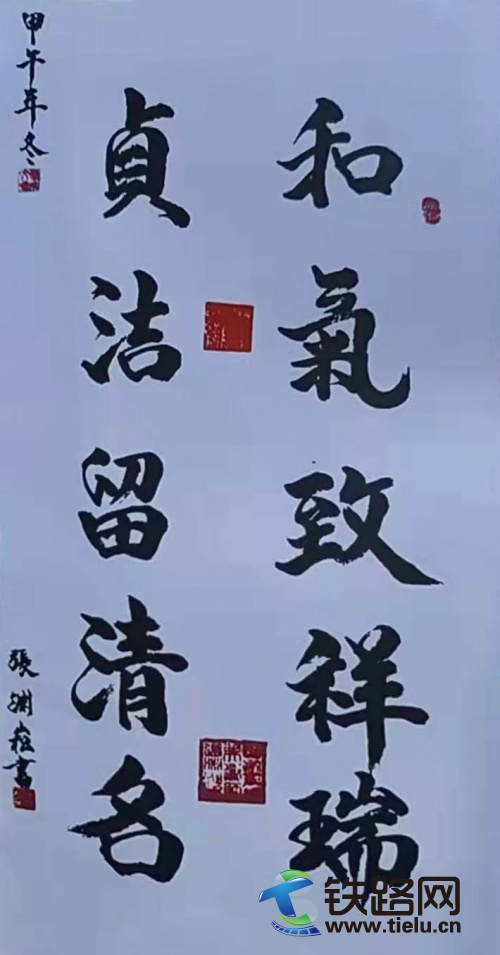 和氣致祥瑞
貞洁留清名
甲午年冬
張渊崧書
铁路网
www.tielu.cn